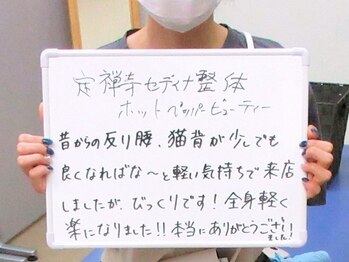 定禅寺セディナ整体
ホットペッパービューティー
昔からの反り腰、猫背が少しでも
良くなればな〜と軽い気持ちで来店
しましたが、びっくりです！全身軽く
楽になりました!!本当にありがとうござい
ました!!